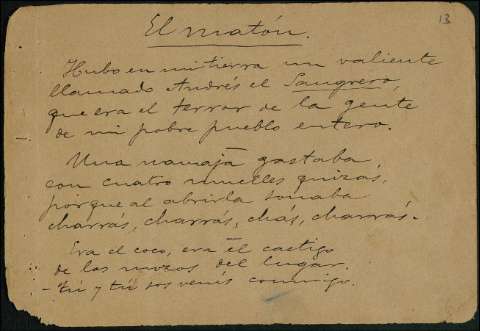 13
El matón.
Hubo en mi tierra un valiente
llamado Andrés el Sangrero,
que era el terror de la gente
de mi pobre pueblo entero.
Una navaja gastaba
con cuatro muelles quizás,
porque al abrirla sonaba
charrás, charrás, chás, charrás.
Era el coco, era el castigo
de los mozos del lugar.
- tú y tú sos venís conmigo.